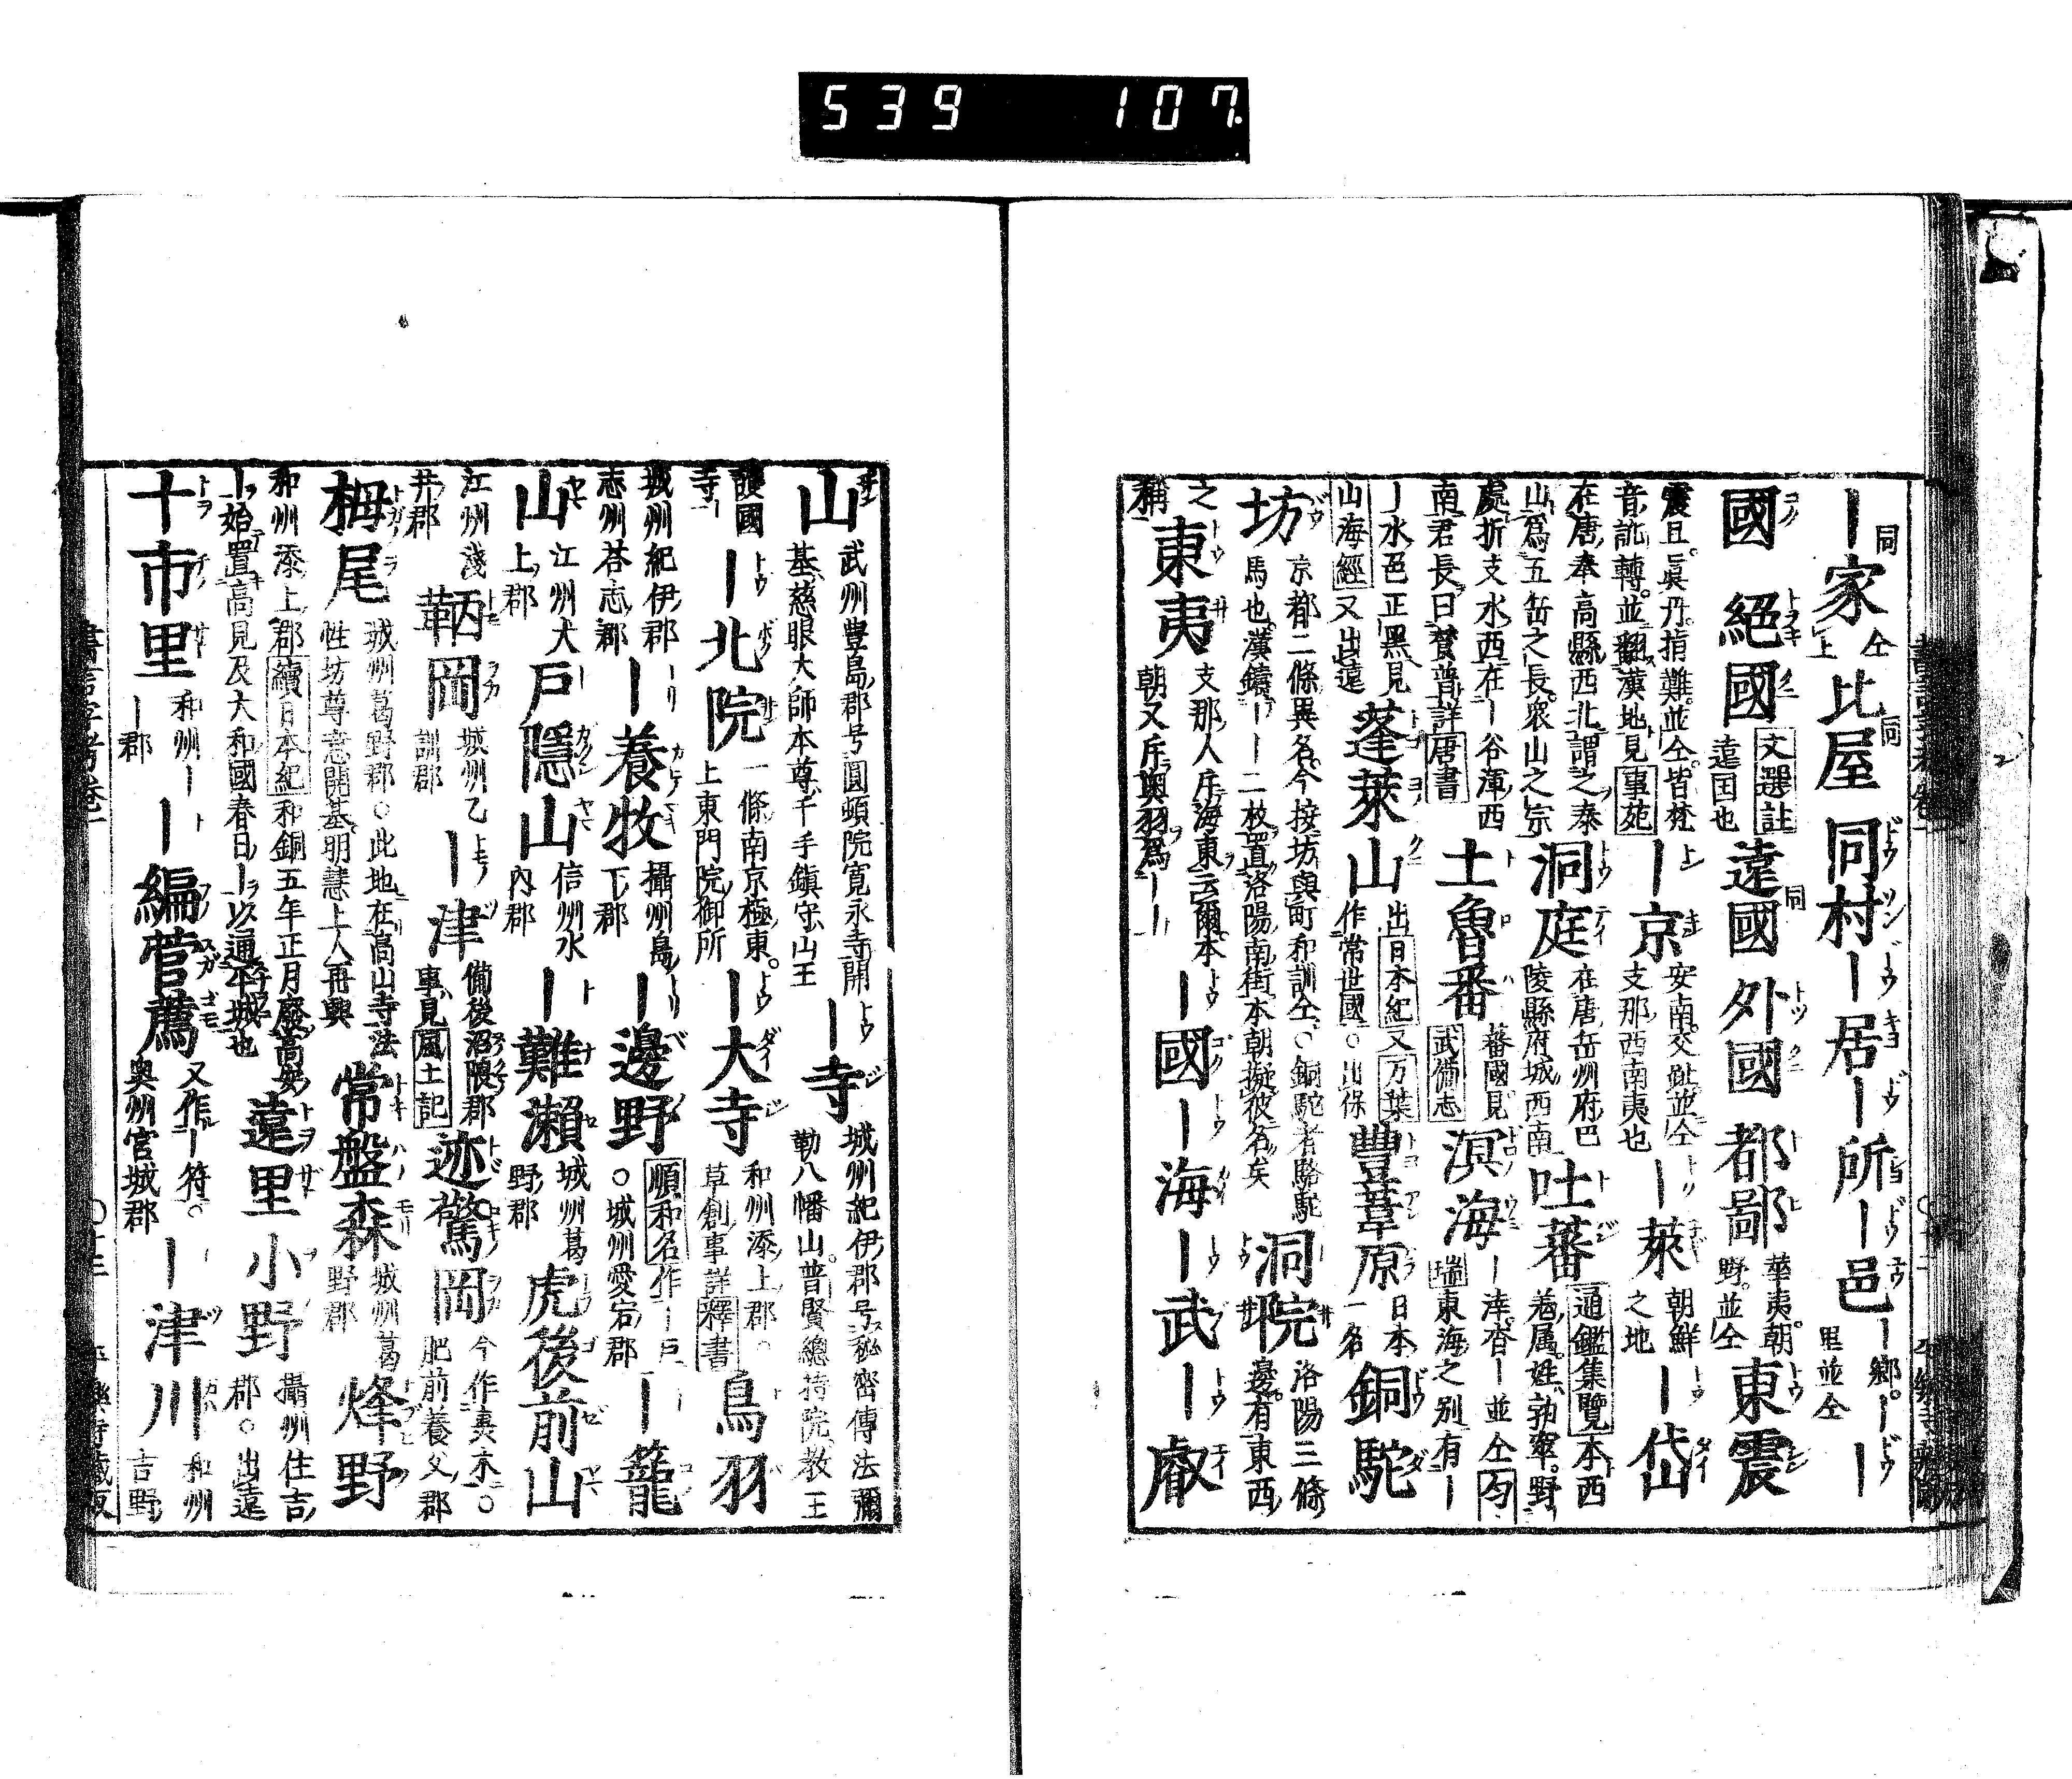 539 107
｜家 仝上 比屋 同 同村｜居｜所｜邑｜鄉｜｜里並仝
國 絕國 文選註遠国也 遠國 同 外國 都鄙 華夷朝野並仝 東震
震旦眞丹指難並仝皆梵音訛轉並翻漢地見事苑 ｜京 安南交趾並仝支那西南夷也 ｜萊 朝鮮之地 ｜岱
在唐奉高縣西北謂之泰山爲五岳之長衆山之宗 洞庭 在唐岳州府巴陵縣府城西南 吐蕃 通鑑集覽本西羌属姓勃窣野
處折支水西在｜谷渾西南君長曰賛普詳唐書 土魯番 蕃國見武備志 溟海 ｜涬杳｜並仝匀瑞東海之别有｜
｜水色正黑見山海經又出遠 蓬萊山 出日本紀又万葉作常世國○出保 豐葦原 日本一名 銅駝
坊 京都二條異名今按坊與町和訓仝○銅駝者駱駝馬也漢鑄｜｜二枚置洛陽南街本朝擬彼名矣 洞院 洛陽三條邊有東西
之稱 東夷 支那人斥海東云爾本朝又斥奥羽爲｜｜ ｜國｜海｜武｜叡
山 武州豊島郡号圓頓院寛永寺開基慈眼大師本尊千手鎭守山王 ｜寺 城州紀伊郡号秘密傳法彌勒八幡山普賢總持院教王
護國寺 ｜北院 一條南京極東上東門院御所 ｜大寺 和州添上郡○草創事詳釋書 鳥羽
城州紀伊郡志州荅志郡 ｜養牧 攝州島下郡 ｜邊野 順和名作｜戸○城州愛宕郡 ｜籠
山 江州大上郡 戸隱山 信州水内郡 ｜難瀬 城州葛野郡 虎後前山
江州淺井郡 鞆岡 城州乙訓郡 ｜津 備後沼隈郡事見風土記 迹驚岡 今作夷末○肥前養父郡
栂尾 城州葛野郡○此地在高山寺法性坊尊意開基明慧上人再興 常盤森 城州葛野郡 烽野
和州添上郡續日本紀和銅五年正月廢高安｜始置高見及大和國春日｜以通平城也 遠里小野 攝州住吉郡○出遠
十市里 和州｜｜郡 ｜編菅薦 又作｜符○奥州宮城郡 ｜津川 和州吉野